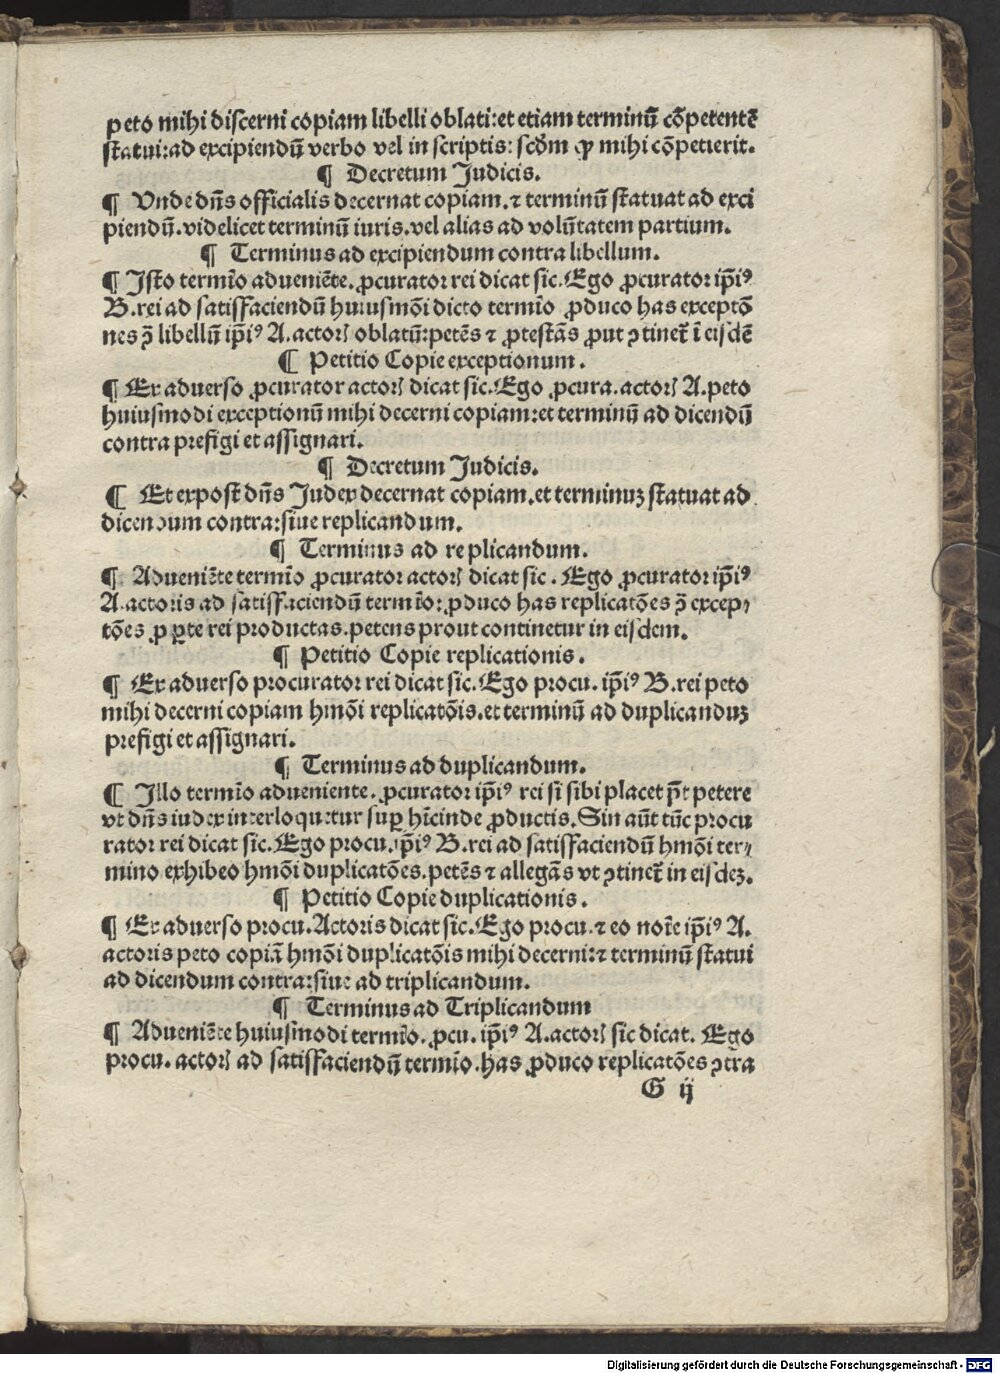 peto mihi discerni copiam libelli oblati:et etiam terminū cōpetentē
statui:ad excipiendū verbo vel in scriptis: scd̄m qp̄ mihi cōpetierit.
¶ Decretum Judicis.
¶ Vnde dn̄s officialis decernat copiam.⁊ terminū statuat ad exci
piendū.videlicet terminū iuris.vel alias ad volūtatem partium.
¶ Terminus ad excipiendum contra libellum.
¶ Isto termīo adueniēte.ꝓcurator rei dicat sic.Ego ꝓcurator ip̄iꝰ
B.rei ad satisfaciendū huiusmōi dicto termīo ꝓduco has exceptō
nes ꝯ̄ libellū ip̄iꝰ A.actoꝝ oblatū:petēs ⁊ ꝓtestās ꝓut ꝯtinet̄ ī eisdē
¶ Petitio Copie exceptionum.
¶ Ex aduerso ꝓcurator actoꝝ dicat sic.Ego ꝓcura.actoꝝ A.peto
huiusmodi exceptionū mihi decerni copiam:et terminū ad dicendū
contra prefigi et assignari.
¶ Decretum Judicis.
¶ Et expost̄ dn̄s Judex decernat copiam.et terminuꝫ statuat ad
dicendum contra:siue replicandum.
¶ Terminus ad replicandum.
¶ Adueniēte termīo ꝓcurator actoꝝ dicat sic. Ego ꝓcurator ip̄iꝰ
A.actoris ad satisfaciendū termīo:ꝓduco has replicatōes ꝯ̄ excep⸗
tōes ꝓ ꝑte rei productas.petens prout continetur in eisdem.
¶ Petitio Copie replicationis.
¶ Ex aduerso procurator rei dicat sic.Ego procu. ip̄iꝰ B.rei peto
mihi decerni copiam hmōi replicatōis.et terminū ad duplicanduꝫ
prefigi et assignari.
¶ Terminus ad duplicandum.
¶ Illo termīo adueniente.ꝓcurator ip̄iꝰ rei si sibi placet pt̄ petere
vt dn̄s iudex interloquetur suꝑ hīcinde ꝓductis.Sin aūt tūc procu
rator rei dicat sic.Ego procu.ip̄iꝰ B.rei ad satisfaciendū hmōi ter⸗
mino exhibeo hmōi duplicatōes.petēs ⁊ allegās vt ꝯtinet̄ in eisdeꝫ.
¶ Petitio Copie duplicationis.
¶ Ex aduerso procu.Actoris dicat sic.Ego procu.⁊ eo noīe ip̄iꝰ A.
actoris peto copiā hmōi duplicatōis mihi decerni:⁊ terminū statui
ad dicendum contra:siue ad triplicandum.
¶ Terminus ad Triplicandum
¶ Adueniēte huiusmodi termīo.ꝓcu.ip̄iꝰ A.actoꝝ sic dicat. Ego
procu.actoꝝ ad satisfaciendū termīo.has ꝓduco replicatōes ꝯtra
G ij
Digitalisierung gefördert durch die Deutsche Forschungsgemeinschaft - DFG